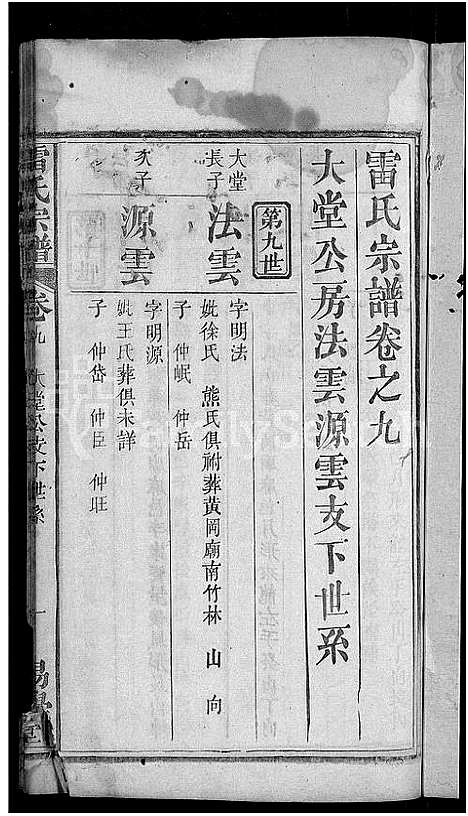 雷氏宗譜卷之九
大堂公房法雲源雲支下世系
第九世
大堂長子
法雲
字明法
妣徐氏 熊氏俱祔葬黃岡廟南竹林 山 向
子 仲岷 仲岳
次子
源雲
字明源
妣王氏葬俱未詳
子 仲岱 仲臣 仲旺
雷氏宗譜
卷九 大堂公支下世系 一